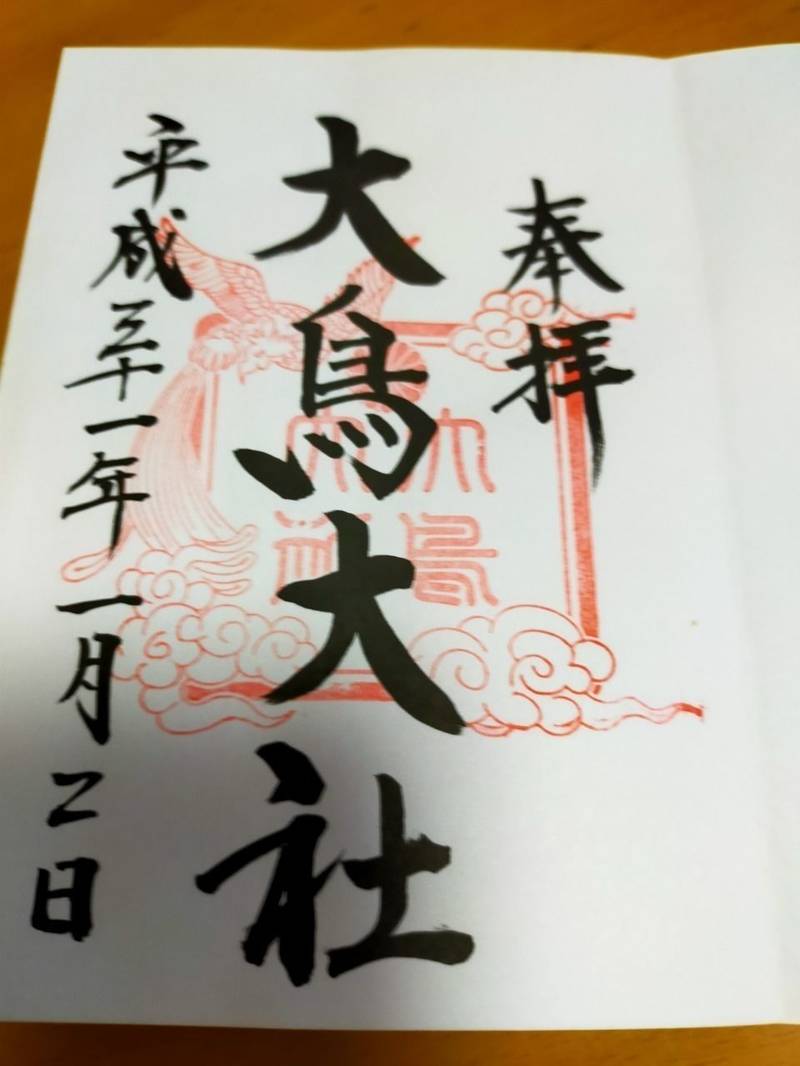 奉拝
大鳥大社
平成三十一年一月二日
大鳥
大社